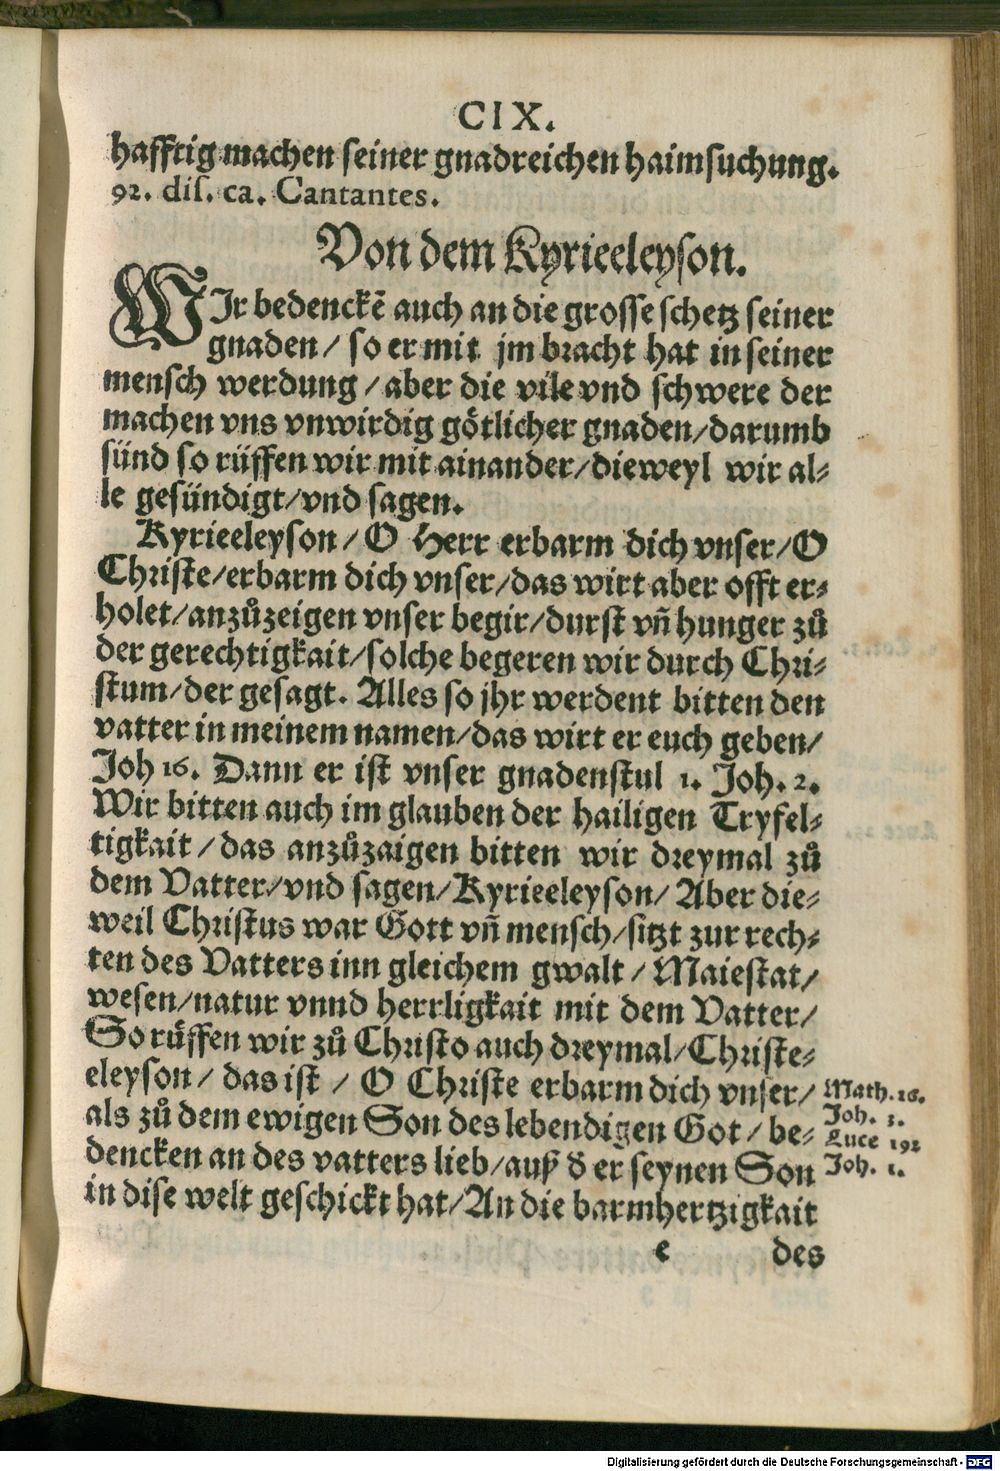 CIX.
hafftig machen seiner gnadreichen haimsuchung.
92. dis. ca. Cantantes.
Von dem Kyrieeleyson.
WJr bedenckē auch an die grosse schetz seiner
gnaden / so er mit jm bracht hat in seiner
mensch werdung / aber die vile vnd schwere der
machen vns vnwirdig götlicher gnaden/darumb
sünd so rüffen wir mit ainander/dieweyl wir al⸗
le gesündigt/vnd sagen.
Kyrieeleyson / O Herr erbarm dich vnser/O
Christe/erbarm dich vnser/das wirt aber offt er⸗
holet/anzůzeigen vnser begir/durst vñ hunger zů
der gerechtigkait/solche begeren wir durch Chri⸗
stum/der gesagt. Alles so jhr werdent bitten den
vatter in meinem namen/das wirt er euch geben/
Joh 16. Dann er ist vnser gnadenstul 1. Joh. 2.
Wir bitten auch im glauben der hailigen Tryfel⸗
tigkait / das anzůzaigen bitten wir dreymal zů
dem Vatter/vnd sagen/Kyrieeleyson/ Aber die⸗
weil Christus war Gott vñ mensch/sitzt zur rech⸗
ten des Vatters inn gleichem gwalt / Maiestat/
wesen/natur vnnd herrligkait mit dem Vatter/
So rüffen wir zů Christo auch dreymal/Christe⸗
eleyson / das ist / O Christe erbarm dich vnser/
als zů dem ewigen Son des lebendigen Got / be⸗
dencken an des vatters lieb/auß d er seynen Son
in dise welt geschickt hat/An die barmhertzigkait
Math. 16.
Joh. 3.
Luce 192
Joh. 1.
e des
Digitalisierung gefördert durch die Deutsche Forschungsgemeinschaft - DFG